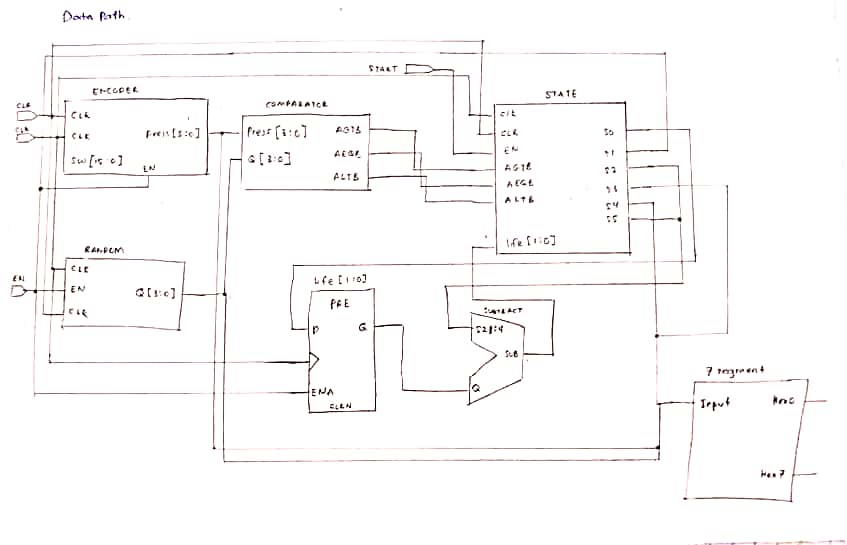 Data Path.
START
ENCODER
CLR
CLK
CLK
Press[3:0]
SW[15:0]
EN
COMPARATOR
Press[3:0]
Q[3:0]
AGTB
AEQB
ALTB
STATE
CLK
CLR
EN
AGTB
AEQB
ALTB
life[1:0]
S0
S1
S2
S3
S4
S5
RANDOM
CLK
EN
CLR
Q[3:0]
EN
life[1:0]
PRE
D
Q
ENA
CLRN
SUBTRACT
SUB
Q
7 segment
Input
Hex0
Hex7